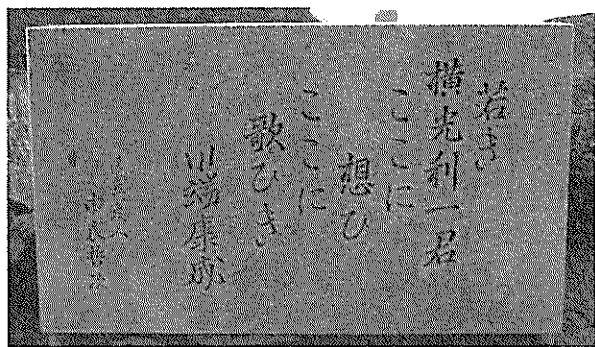 若き
横光利一君
ここに
想ひ
ここに
歌ひき
川端康成